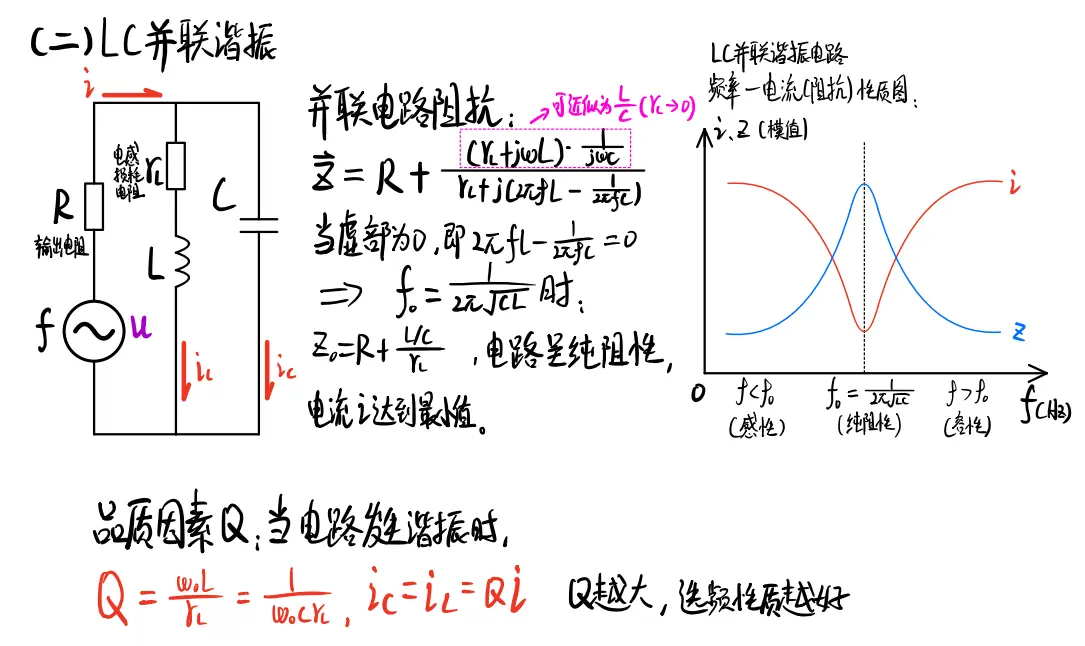 (二)LC并联谐振
i
电感
损耗
电阻
r_L
R
输出电阻
C
L
f
u
i_L
i_C
并联电路阻抗:
→可近似为L/C(r_L→0)
Z = R + ((r_L+jωL)·1/(jωC))/(r_L+j(2πfL - 1/(2πfC)))
当虚部为0,即2πfL - 1/(2πfC) = 0
⇒ f₀ = 1/(2π√(CL))时:
Z₀=R+(L/C)/r_L ,电路呈纯阻性,
电流i达到最小值。
LC并联谐振电路
频率-电流(阻抗)性质图:
i、Z(模值)
i
Z
0
f<f₀
(感性)
f₀=1/(2π√(LC))
(纯阻性)
f>f₀
(容性)
f(Hz)
品质因素Q:当电路发生谐振时,
Q = ω₀L/r_L = 1/(ω₀Cr_L), i_C=i_L=Qi Q越大,选频性质越好